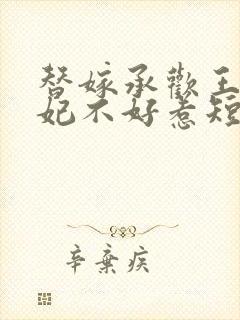 替嫁承歡王
妃不好惹短
辛棄疾